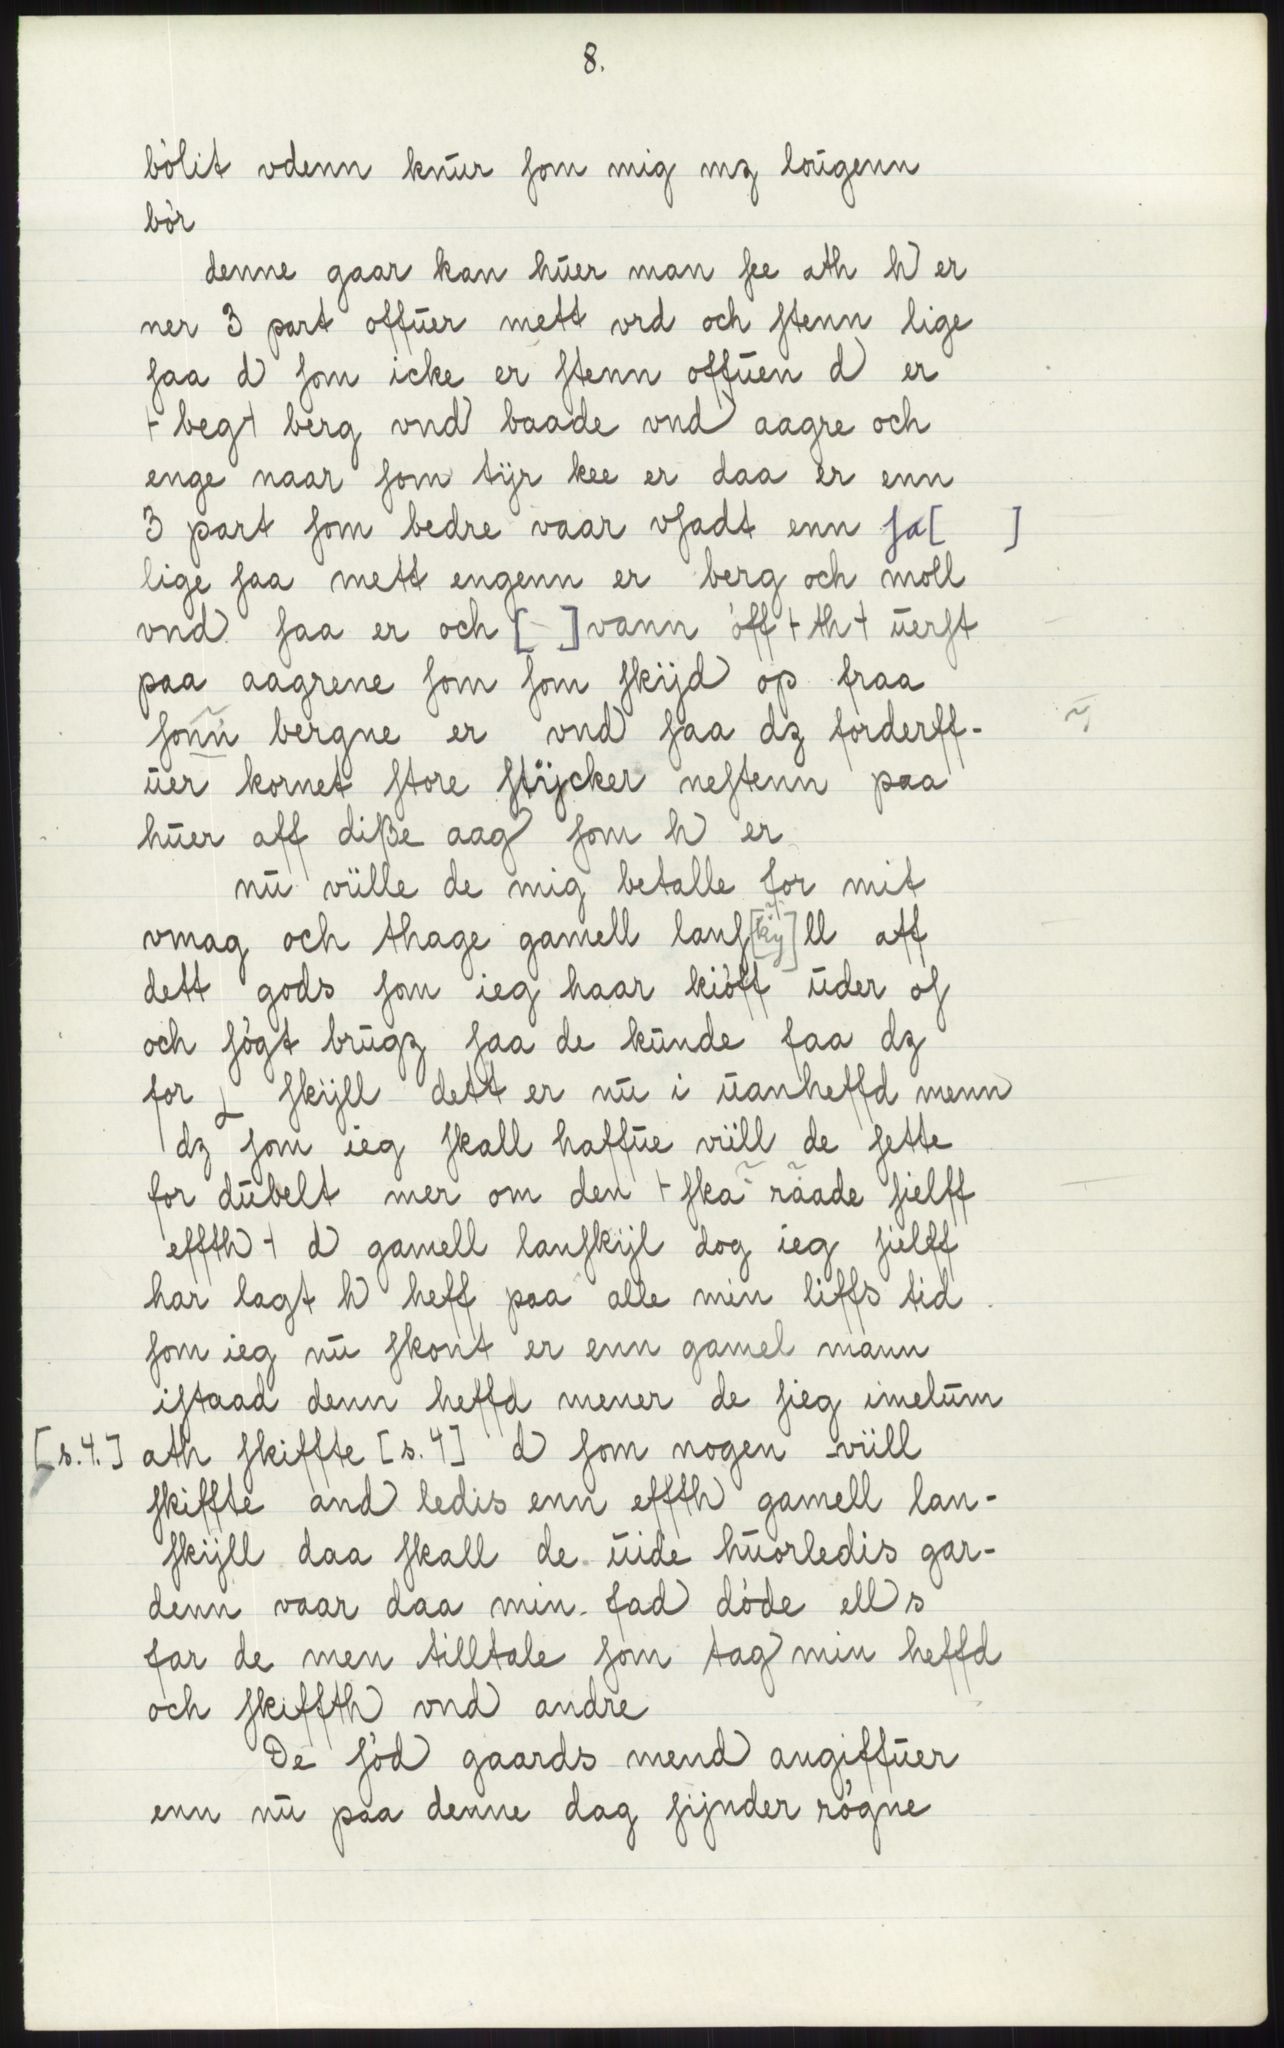 8.
bólit vdenn knūr som mig mz loūgenn
bór
denne gaar kan hūer man see ath h er
ner 3 part offūer mett vrd och stenn lige
saa d som icke er stenn offūen d er
+ beg+ berg vnd baade vnd aagre och
enge naar som tÿr kee er daa er enn
3 part som bedre vaar vsadt enn sa[ ]
lige saa mett engenn er berg och moll
vnd saa er och [ - ] vann óff + th + ūerst
paa aagrene som som skÿd op fraa
sonn bergne er vnd saa dz forderff-
ūer kornet store stÿcker nestenn paa
hūer aff diße aag som h er
nū vülle de mig betalle for mit
vmag och thage gamell lans[kÿ]ll aff
dett gods som ieg haar kiófft ūder of
och sógt brūgz saa de kūnde faa dz
for skÿll dett er nū i ūanheffd menn
dz som ieg skall haffūe vüll de sette
for dūbelt mer om den + ska raade sielff
effth + d gamell lanskÿl dog ieg sielff
har lagt h heff paa alle min liffs tid
som ieg nū skont er enn gamel mann
istaad denn heffd mener de sieg imelūm
[s.4.] ath skiffte [s.4] d som nogen vüll
skiffte and ledis enn effth gamell lan-
skÿll daa skall de ūide hūorledis gar-
denn vaar daa min fad dóde ells
far de men tilltale som tag min heffd
och skiffth vnd andre
De sód gaards mend angiffūer
enn nū paa denne dag sÿnder rógne